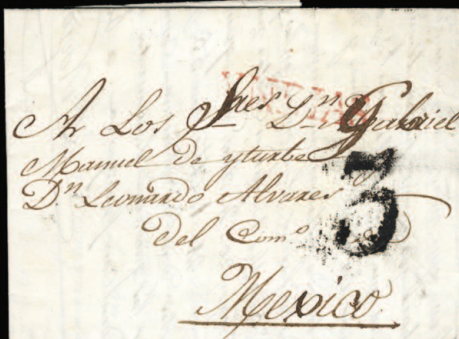 A Los Sres Dn Gabriel
Manuel de yturbe y
Dn Leonardo Alvares
del Como
3
Mexico